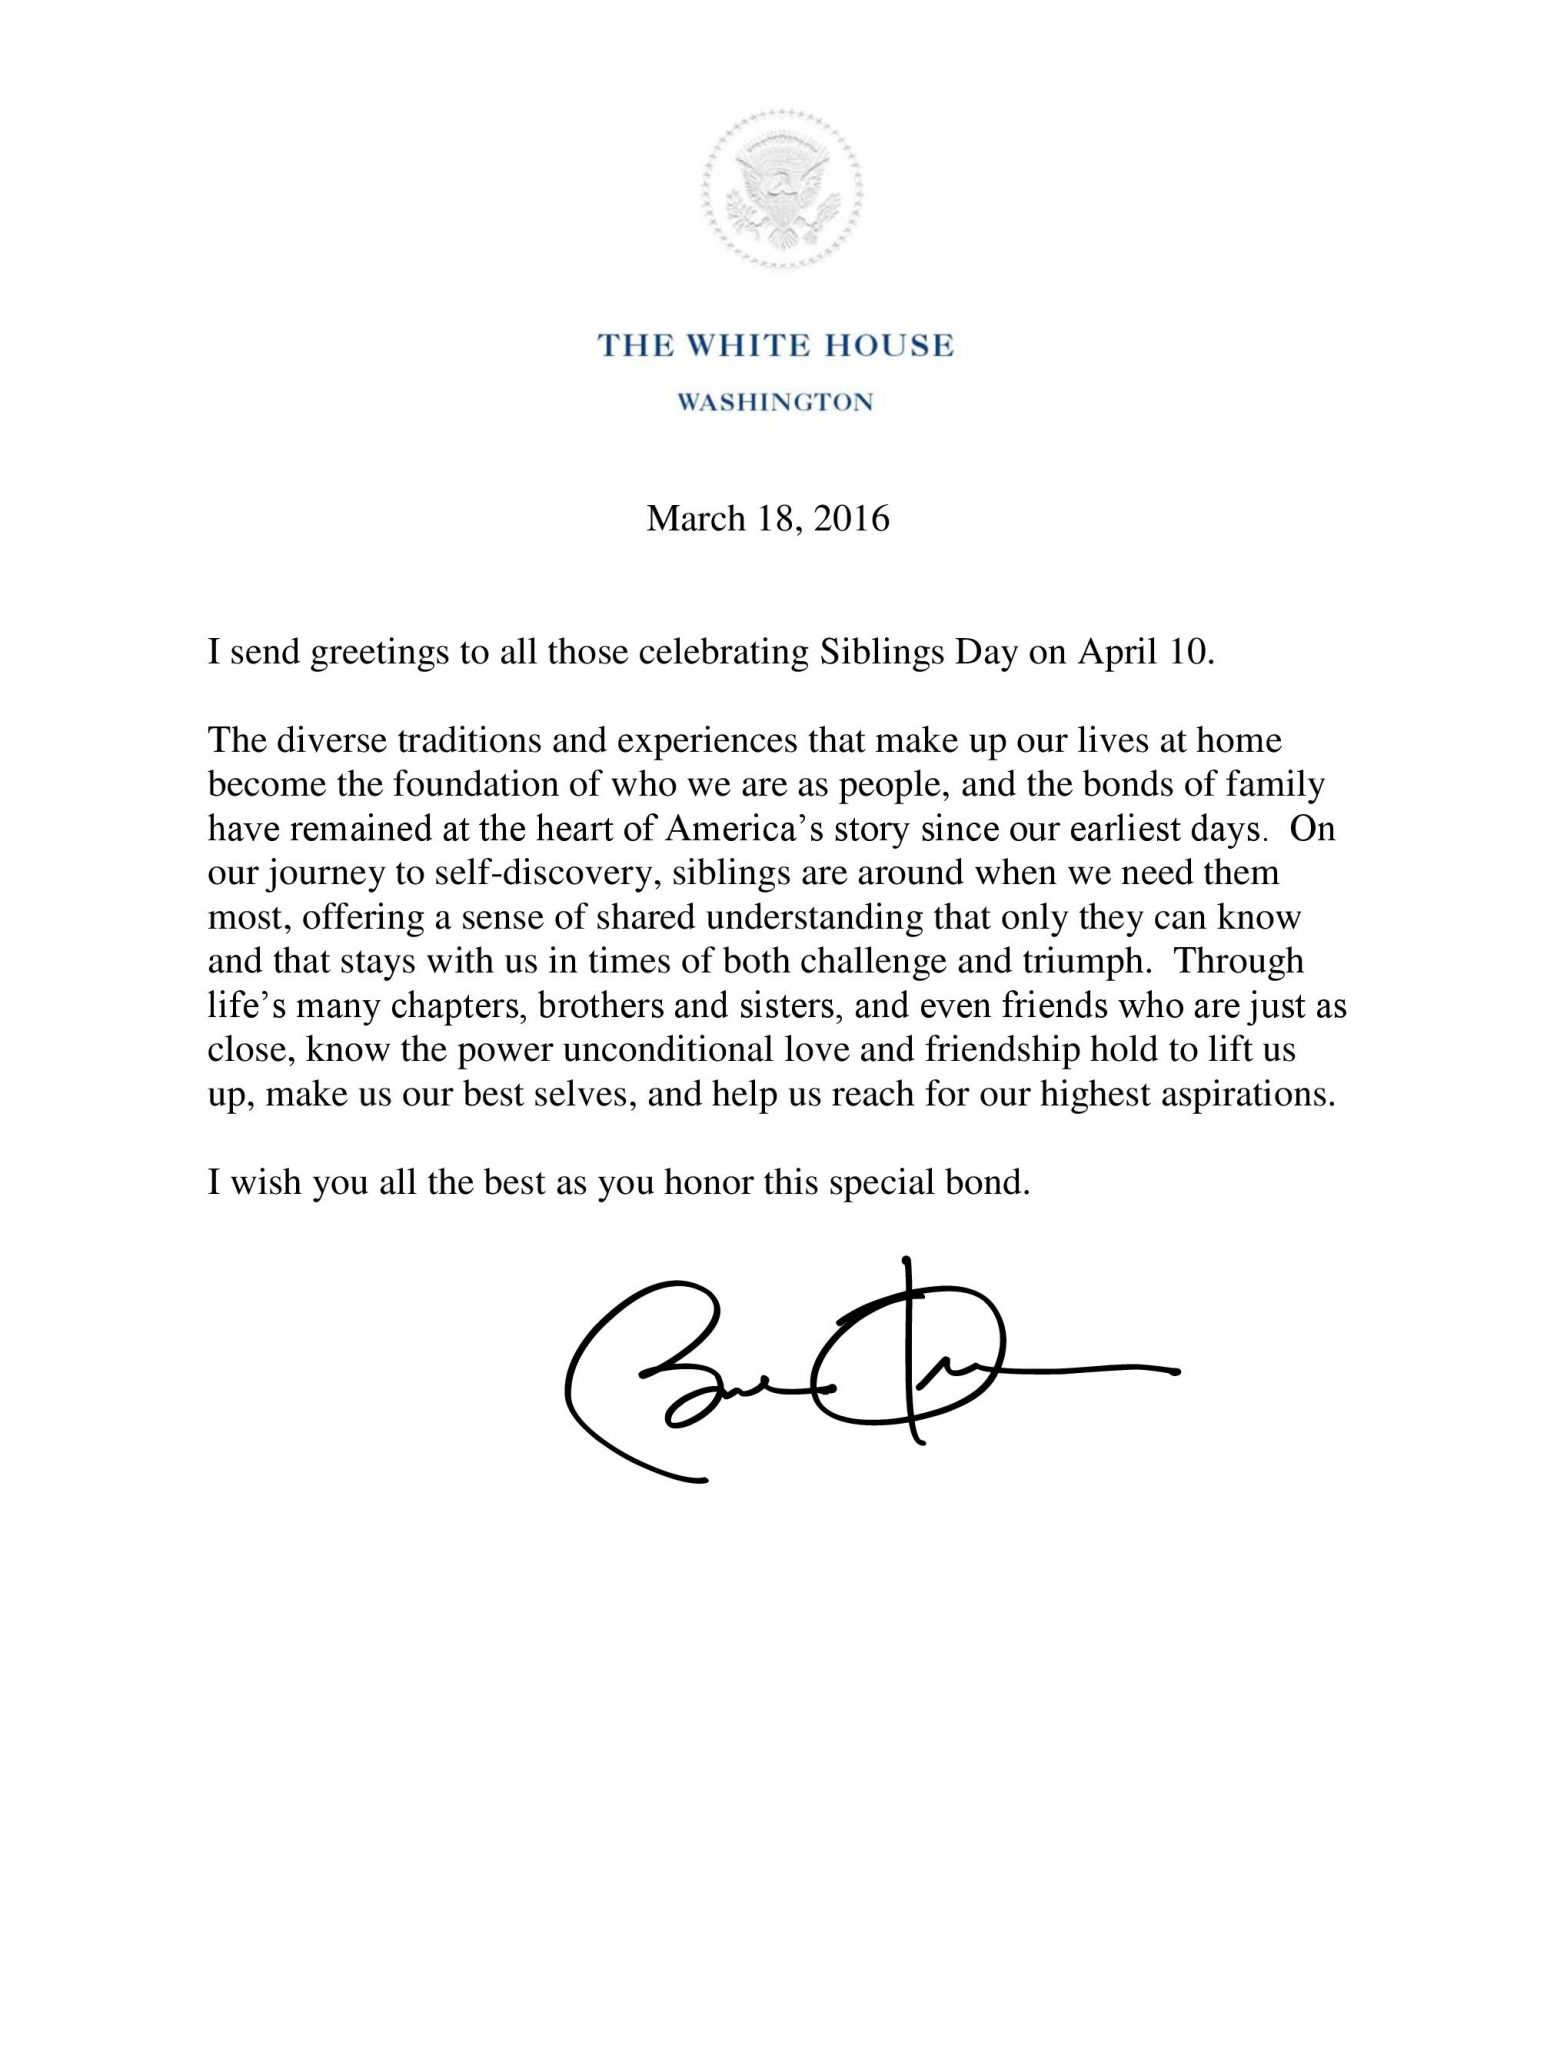 THE WHITE HOUSE
WASHINGTON
March 18, 2016
I send greetings to all those celebrating Siblings Day on April 10.
The diverse traditions and experiences that make up our lives at home
become the foundation of who we are as people, and the bonds of family
have remained at the heart of America’s story since our earliest days.  On
our journey to self-discovery, siblings are around when we need them
most, offering a sense of shared understanding that only they can know
and that stays with us in times of both challenge and triumph.  Through
life’s many chapters, brothers and sisters, and even friends who are just as
close, know the power unconditional love and friendship hold to lift us
up, make us our best selves, and help us reach for our highest aspirations.
I wish you all the best as you honor this special bond.